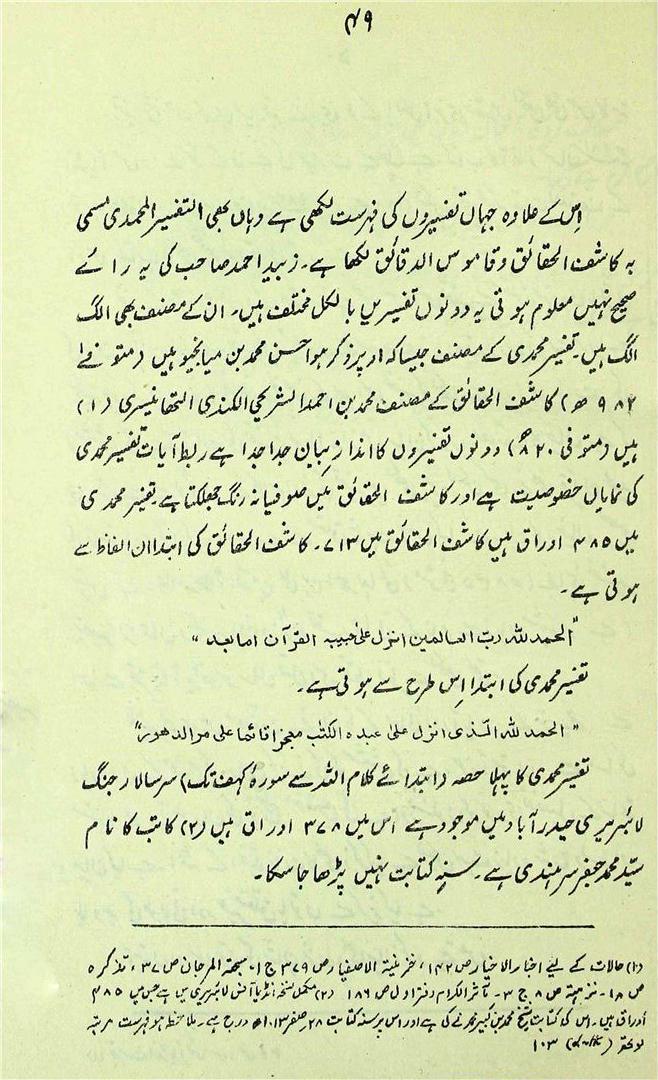 ۴۹
اِس کے علاوہ جہاں تفسیروں کی فہرست لکھی ہے وہاں بھی التفسیر المحمدی مسمی
بہ کاشف الحقائق وقاموس الدقائق لکھا ہے۔ زبید احمد صاحب کی یہ رائے
صحیح نہیں معلوم ہوتی یہ دونوں تفسیریں بالکل مختلف ہیں۔ ان کے مصنف بھی الگ
الگ ہیں۔ تفسیر محمدی کے مصنف جیسا کہ اوپر ذکر ہوا حسن محمد بن میانجیو ہیں (متوفی
۹۸۲ ھ) کاشف الحقائق کے مصنف محمد بن احمد الشریحی الکندی التھانیسری (۱)
ہیں (متوفی ۸۲۰ھ) دونوں تفسیروں کا انداز بیان جدا جدا ہے ربط آیات تفسیر محمدی
کی نمایاں خصوصیت ہے اور کاشف الحقائق میں صوفیانہ رنگ جھلکتا ہے۔ تفسیر محمدی
میں ۴۸۵ اوراق ہیں کاشف الحقائق میں ۷۱۳۔ کاشف الحقائق کی ابتدا ان الفاظ سے
ہوتی ہے۔
"الحمد للہ ربّ العالمین انزل علیٰ حبیبہ القرآن امابعد"
تفسیر محمدی کی ابتدا اِس طرح سے ہوتی ہے۔
"الحمد للہ الذی انزل علیٰ عبدہ الکتٰب معجزا قائما علیٰ مر الدھور"
تفسیر محمدی کا پہلا حصہ (ابتدائے کلام اللہ سے سورۂ کہف تک) سر سالار جنگ
لائبریری حیدرآباد میں موجود ہے اس میں ۳۷۸ اوراق ہیں (۲) کاتب کا نام
سیّد محمد جعفر سرہندی ہے۔ سنہٖ کتابت نہیں پڑھا جا سکا۔
(۱) حالات کے لیئے اخبار الاخیار ص ۱۴۲، خزینۃ الاصفیا ص ۳۷۹ ج ۱۔ سبحۃ المرجان ص ۳۷، تذکرہ
ص ۱۸۔ نزہتہ ص ۸ ج ۳۔ مآثر الکرام دفتر اول ص ۱۸۶ (۲) مکمل نسخہ انڈیا آفس لائبریری میں ہے جس میں ۴۸۵
اوراق ہیں۔ اس کی کتابت شیخ محمد بن کبیر محمد نے کی ہے اور اس پر سنہ کتابت ۲۸ صفر ۱۰۱۳ھ درج ہے۔ ملاحظہ ہو فہرست مرتبہ
لوتھ ۱۰۳